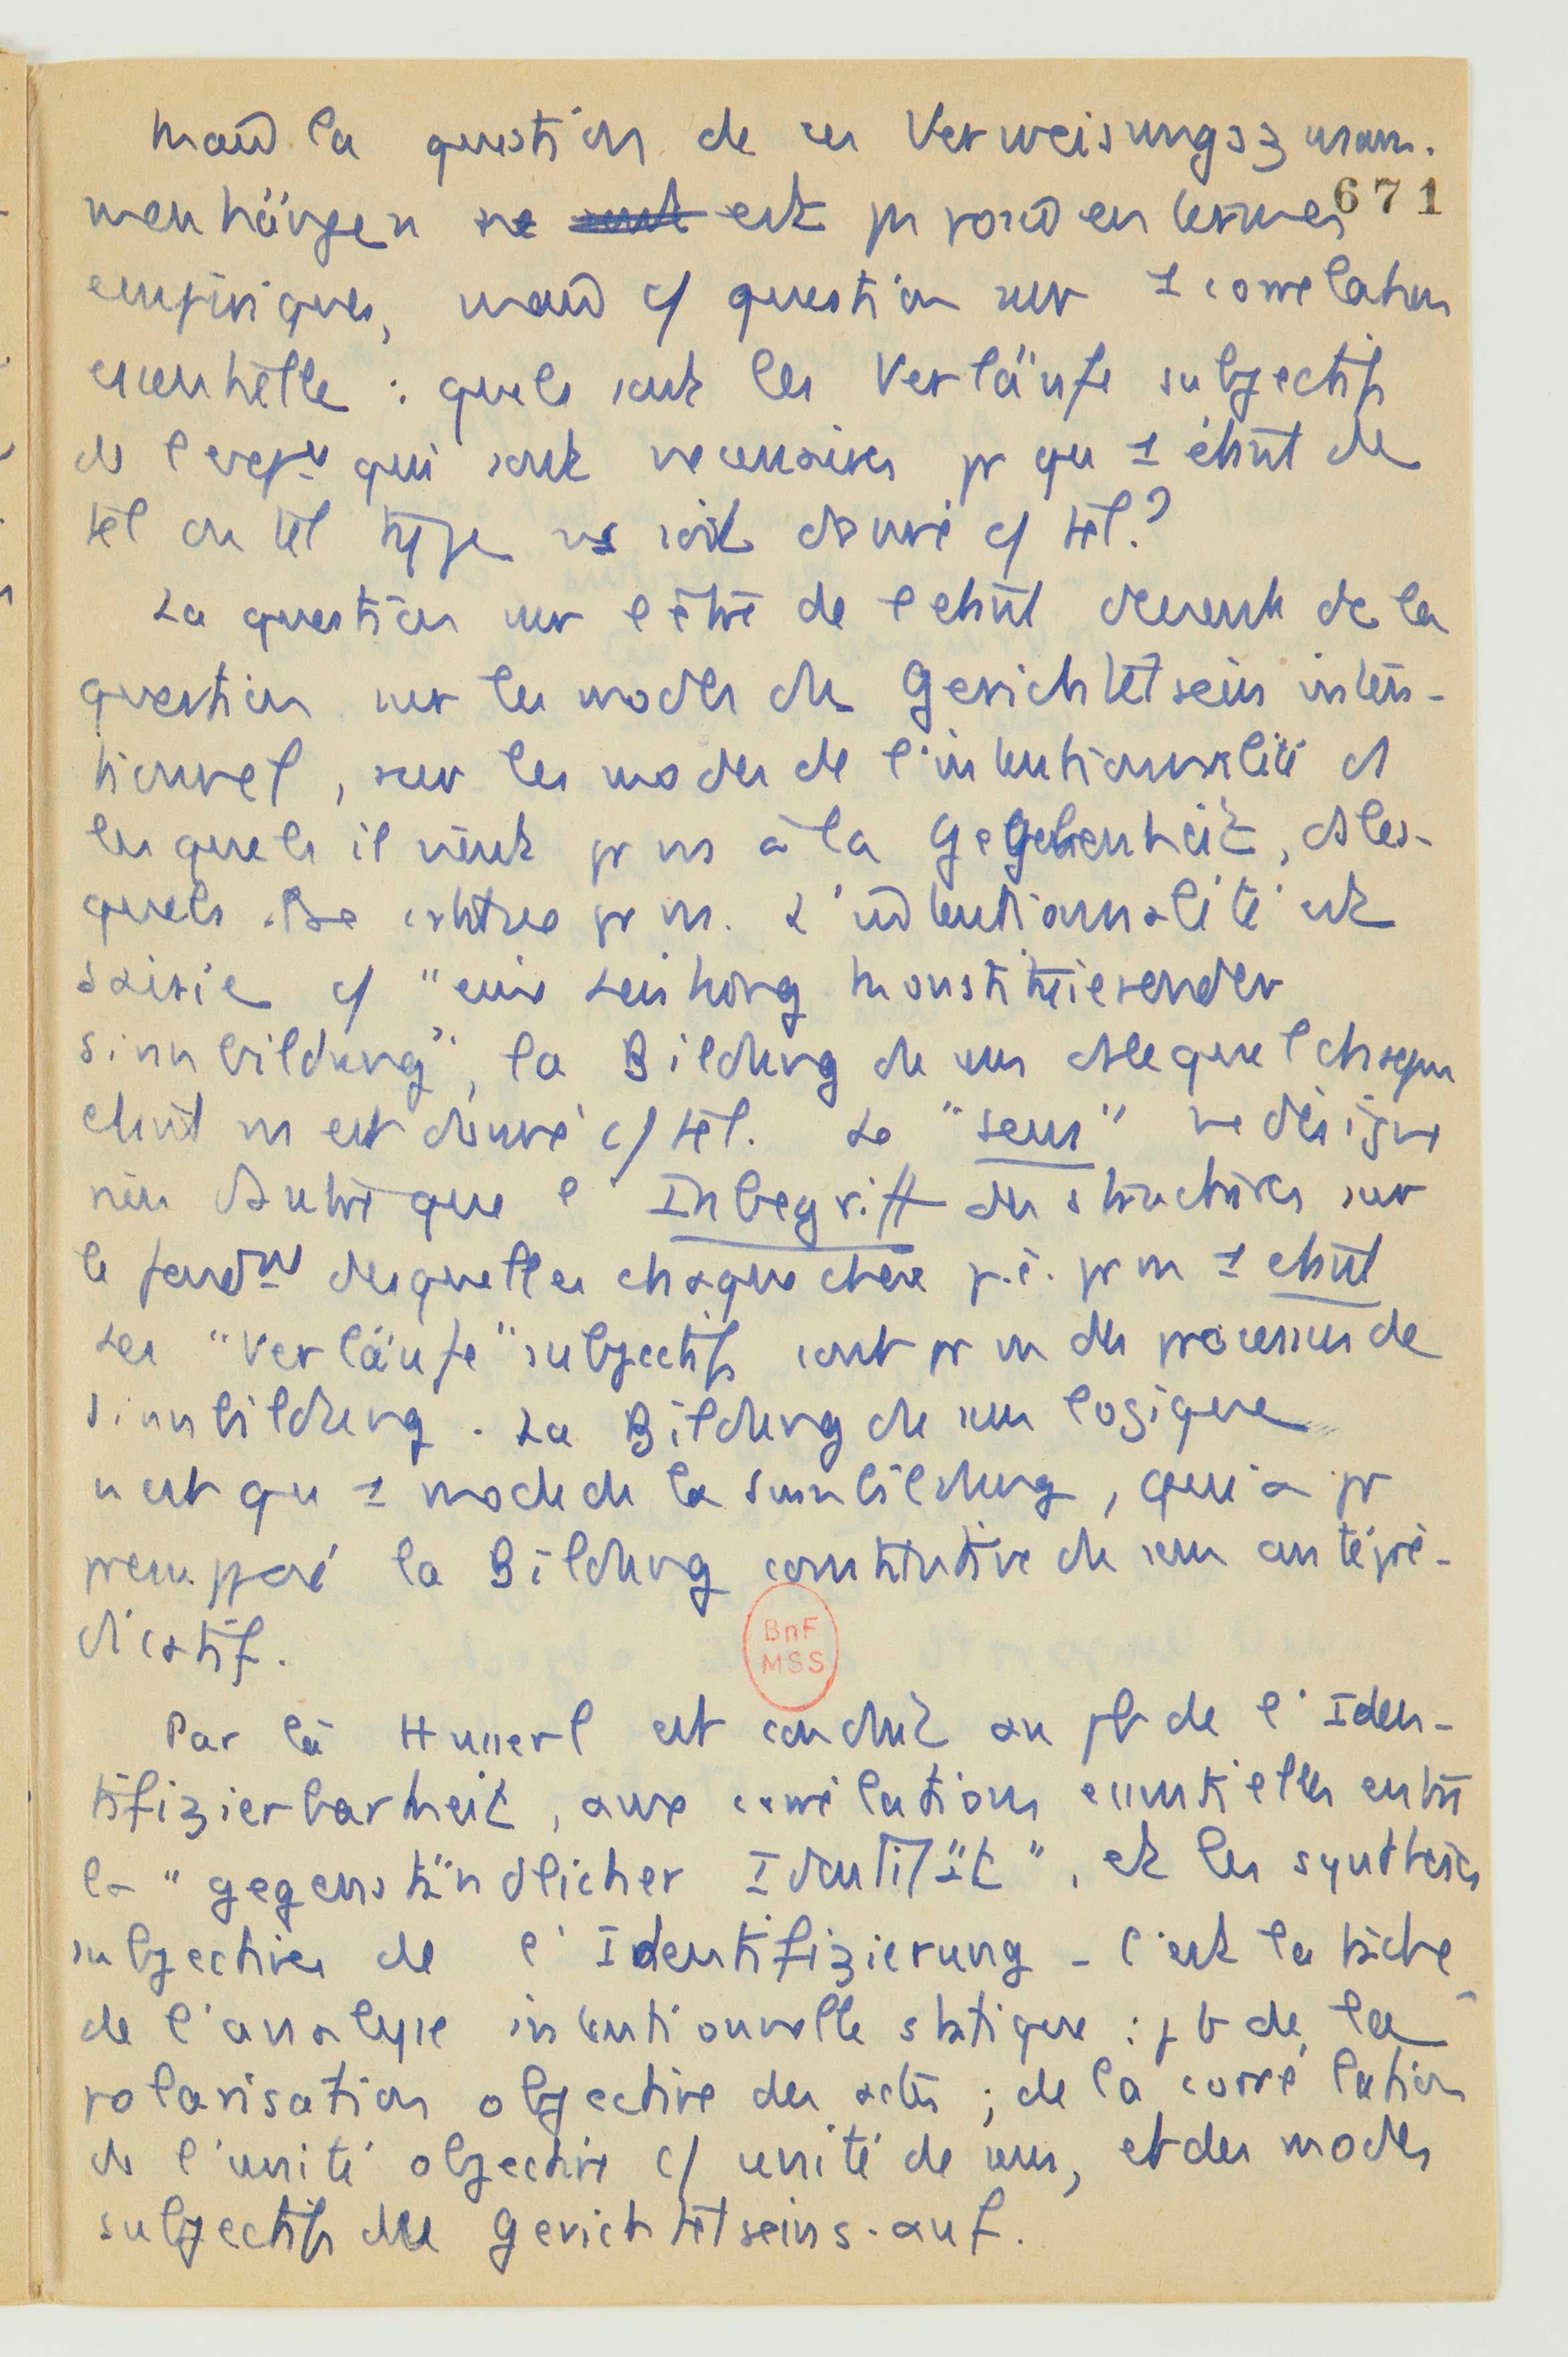 Mais la question de ces Verweisungszusam-
671
menhängen ne sont est pas posée en termes
empiriques, mais c/ question sur 1 correlation
essentielle : quels sont les Verläufe subjectifs
de l'expce qui sont necessaires pr qu 1 étant de
tel ou tel type ns soit donné c/ tel ?
La question sur l'être de l'etant devient dc la
question sur les modes du Gerichtetseins inten-
tionnel, sur les modes de l'intentionnalité ds
lesquels il vient pr ns à la Gegebenheit, ds les-
quels se pr ns. L'intentionnalité est
saisie c/ "eine Leistung konstituierender
Sinnbildung", la Bildung du sens ds lequel chaque
etant ns est donné c/ tel. Le "sens" ne désigne
rien d'autre que l'Inbegriff des structures sur
le fondt desquelles chaque chose p.ê. pr ns 1 etant
Les "Verläufe" subjectifs sont pr ns des processus de
Sinnbildung. La Bildung du sens logique
n'est qu 1 mode de la Sinnbildung, qui a pr
presupposé la Bildung constitutive du sens antépré-
dicatif.
BnF
MSS
Par là Husserl est conduit au pb de l'Iden-
tifizierbarkeit, aux corrélations essentielles entre
la "gegenständlicher Identität", et les synthèses
subjectives de l'Identifizierung - C'est la tâche
de l'analyse intentionnelle statique : pb de la
polarisation objective des actes ; de la corrélation
de l'unité objective c/ unité de sens, et des modes
subjectifs du Gerichtetseins-auf.